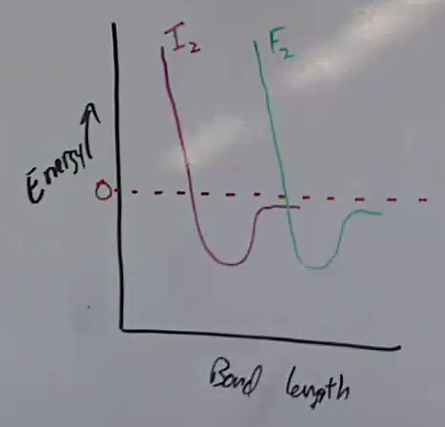 I₂
F₂
Energy
0
Bond length